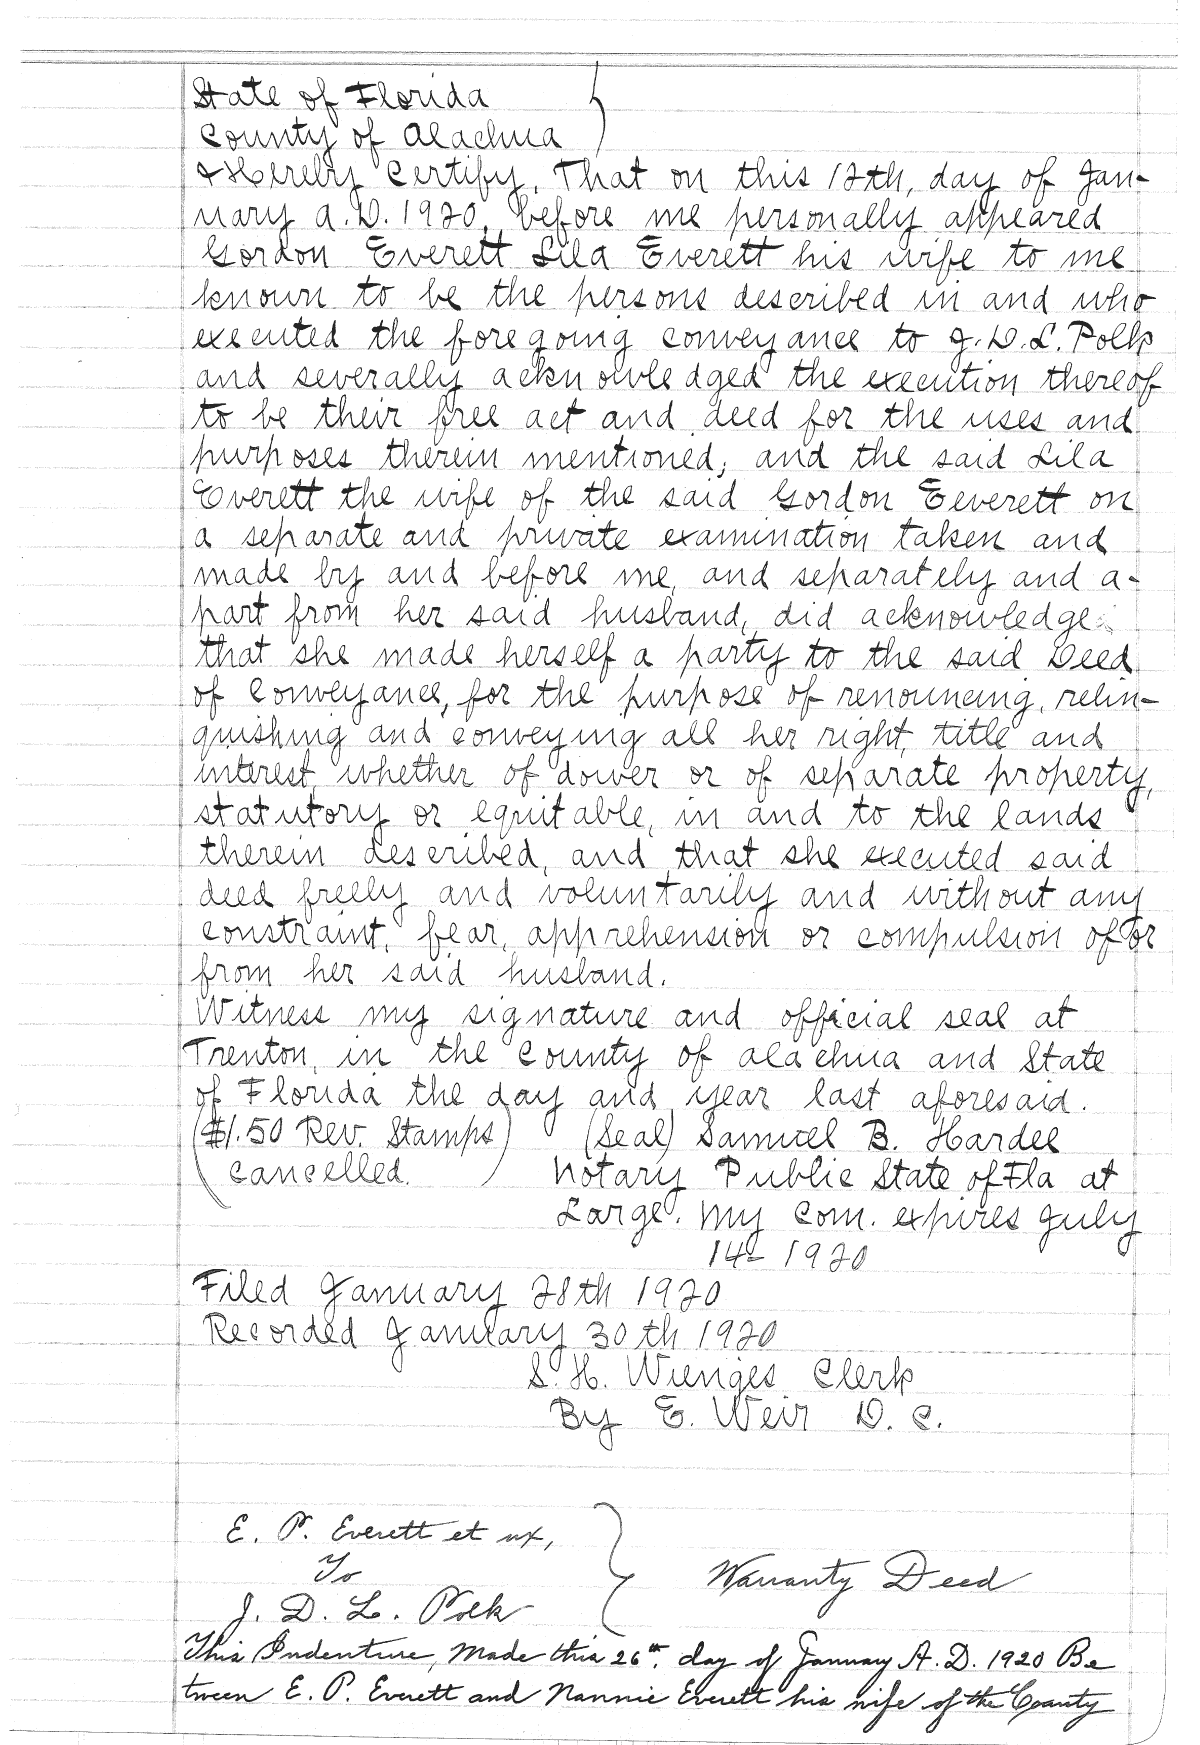 State of Florida
County of Alachua
I Hereby Certify, That on this 12th, day of Jan-
uary A.D. 1920, before me personally appeared
Gordon Everett Lila Everett his wife to me
known to be the persons described in and who
executed the foregoing conveyance to J.D.L. Polk
and severally acknowledged the execution thereof
to be their free act and deed for the uses and
purposes therein mentioned; and the said Lila
Everett the wife of the said Gordon Eeverett on
a separate and private examination taken and
made by and before me, and separately and a-
part from her said husband, did acknowledge
that she made herself a party to the said Deed
of Conveyance, for the purpose of renouncing, relin-
quishing and conveying all her right, title and
interest, whether of dower or of separate property,
statutory or equitable, in and to the lands
therein described, and that she executed said
deed freely and voluntarily and without any
constraint, fear, apprehension or compulsion of or
from her said husband.
Witness my signature and official seal at
Trenton, in the County of Alachua and State
of Florida the day and year last aforesaid.
($1.50 Rev. Stamps) (Seal) Samuel B. Hardee
cancelled. Notary Public State of Fla at
Large. My Com. expires July
14- 1920
Filed January 28th 1920
Recorded January 30th 1920
S. H. Wienges Clerk
By E. Weir D. C.
E. P. Everett et ux,
To
Warranty Deed
J. D. L. Polk
This Indenture, Made this 26th. day of January A.D. 1920 Be
tween E. P. Everett and Nannie Everett his wife of the County